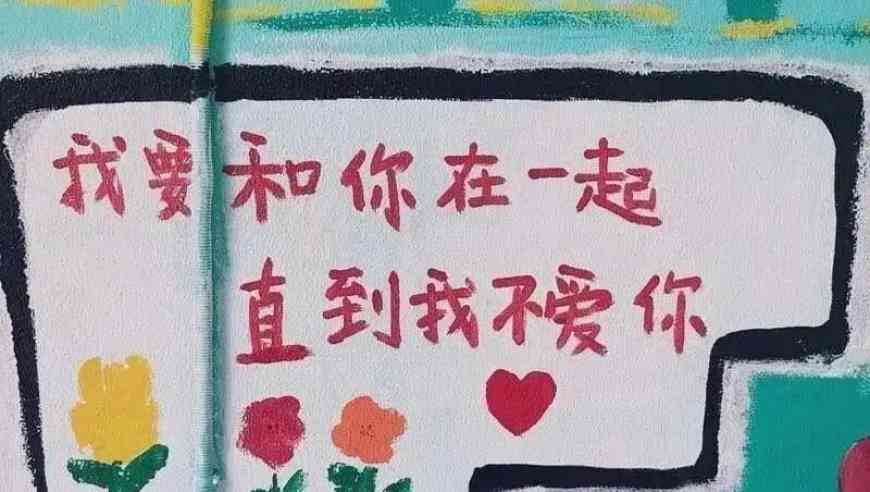 我要和你在一起
直到我不爱你